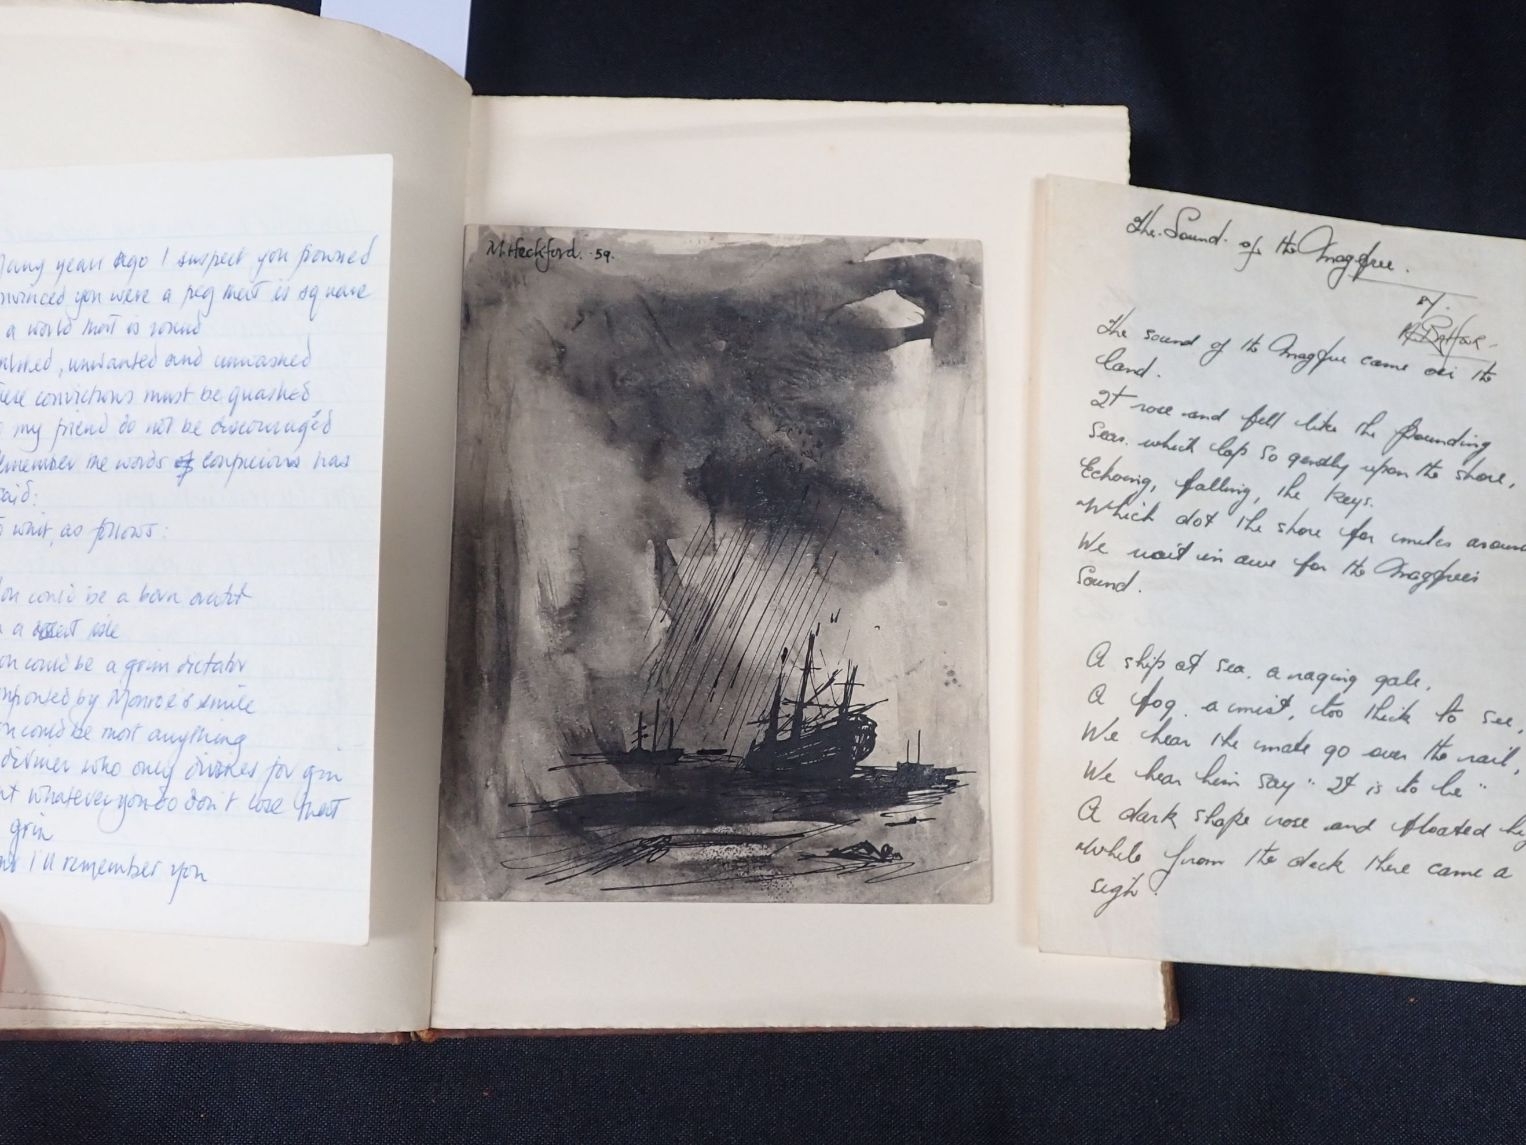 Many years ago I suspect you frowned
convinced you were a peg that is square
a world that is round
unwanted and unwashed
convictions must be quashed
my friend do not be discouraged
Remember the words of
said:
To whit, as follows:
You could be a born
a
You could be a grim dictator
by Monroe's smile
You could be most anything
who only for gin
whatever you do don't lose that
grin
I'll remember you
M. Heckford. 59.
The Sound of the
by.
The sound of the came oer the
land.
It rose and fell like the pounding
Seas. which lap so gently upon the shore,
Echoing, falling, the keys.
Which dot the shore for miles around
We wait in awe for the
Sound.
A ship at sea. a raging gale.
A fog. a mist, too thick to see,
We hear the mate go over the rail,
We hear him say "It is to be"
A dark shape rose and floated
While from the deck there came a
sigh.